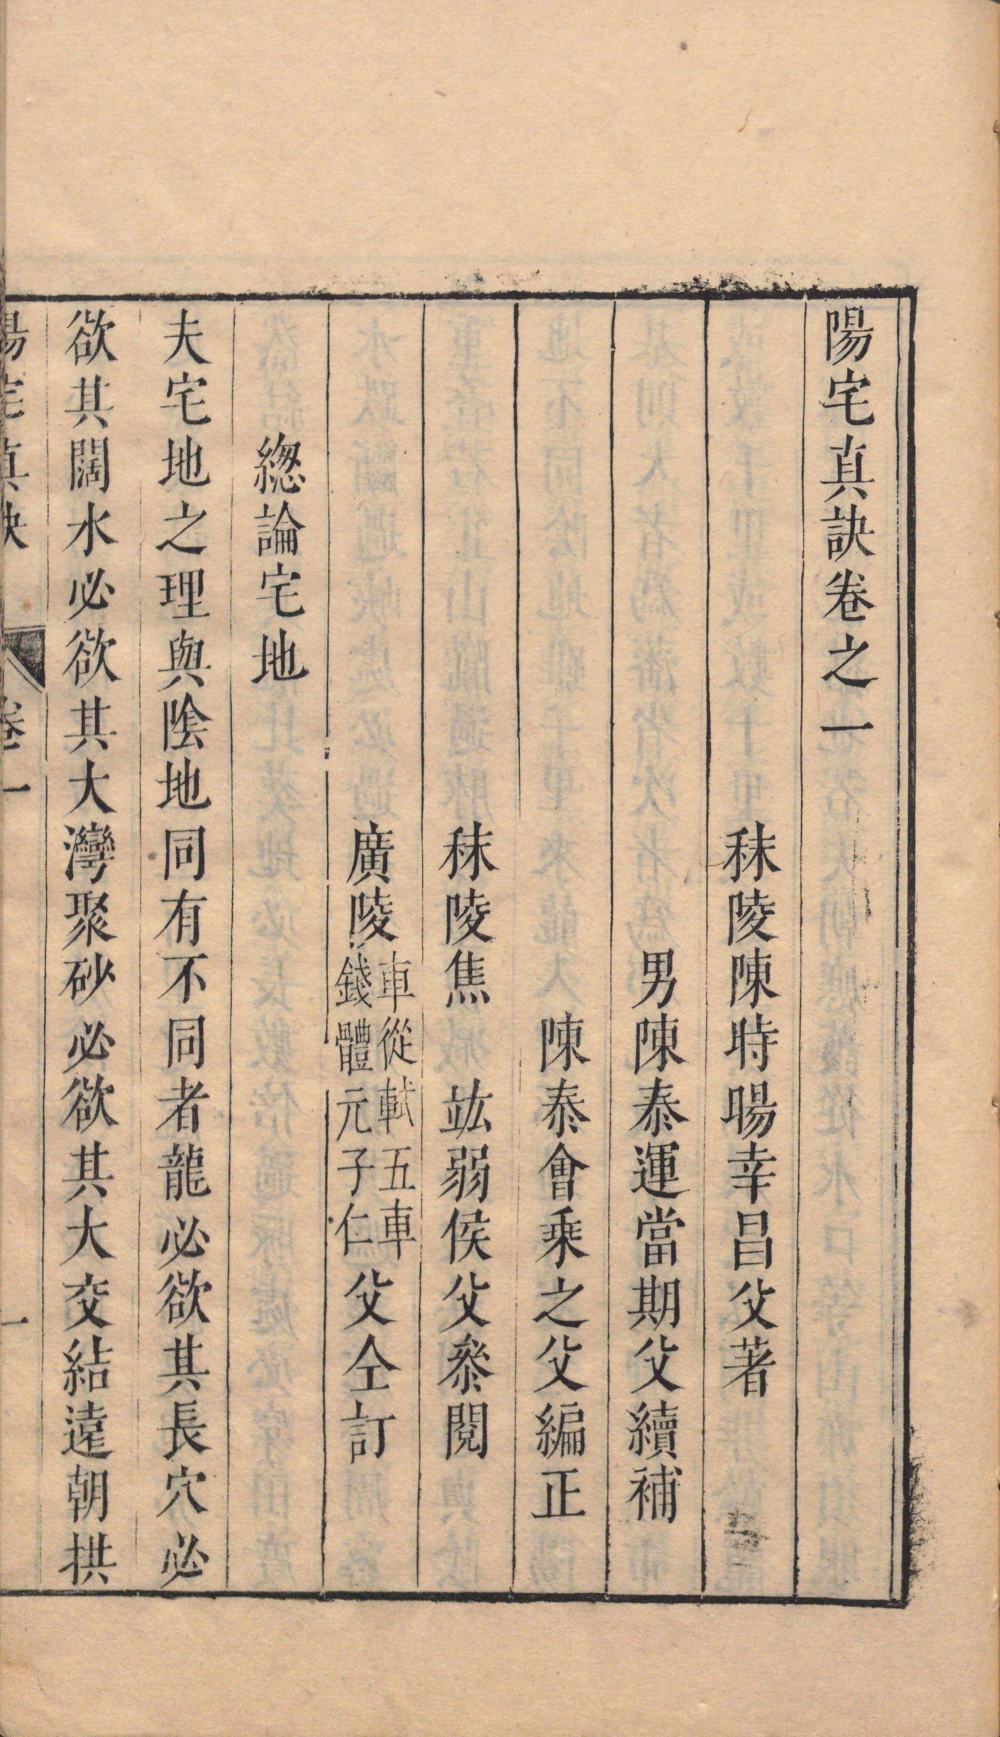 陽宅真訣卷之一
秣陵陳時暘幸昌父著
男陳泰運當期父續補
陳泰會乘之父編正
秣陵焦　竑弱侯父叅閱
廣陵車從軾五車錢體元子仁父仝訂
緫論宅地
夫宅地之理與陰地同有不同者龍必欲其長穴必
欲其闊水必欲其大灣聚砂必欲其大交結遠朝拱
陽宅真訣　卷一　一